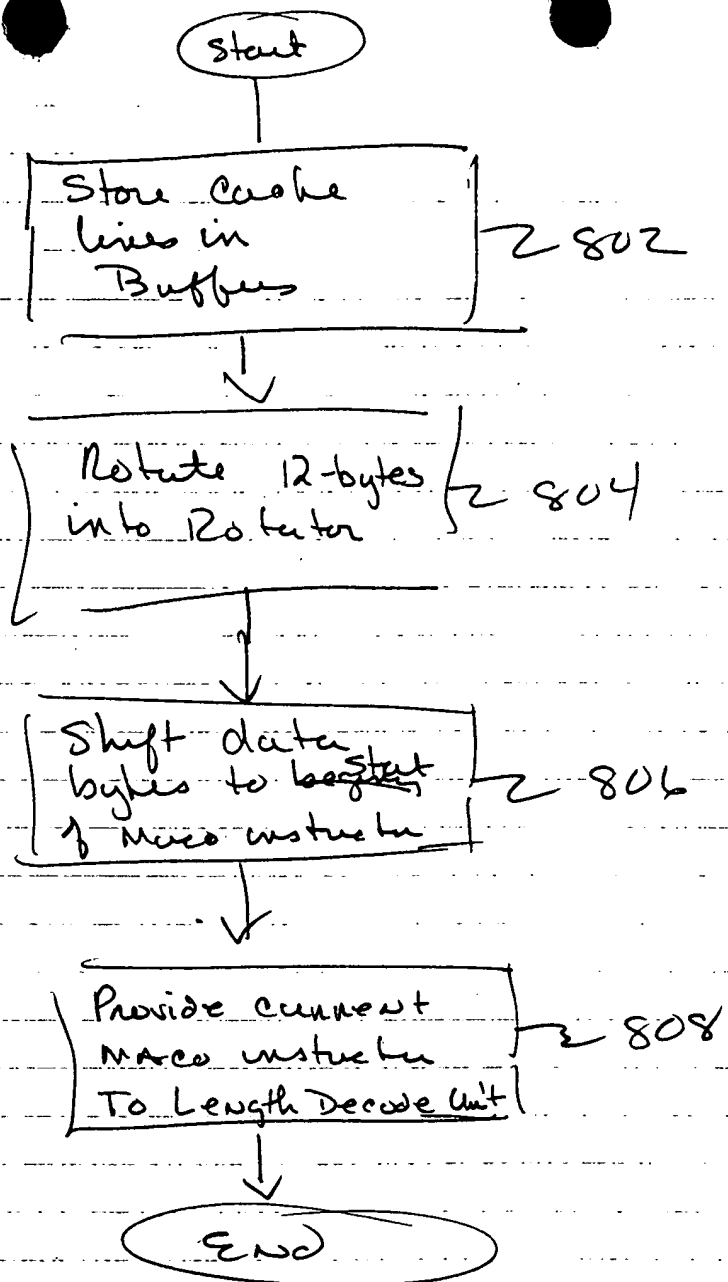 Start
Store Cache
lines in
Buffers
802
Rotate 12-bytes
into Rotator
804
Shift data
bytes to Start
of Maco instructn
806
Provide current
MAco instructn
To Length Decode Unit
808
END